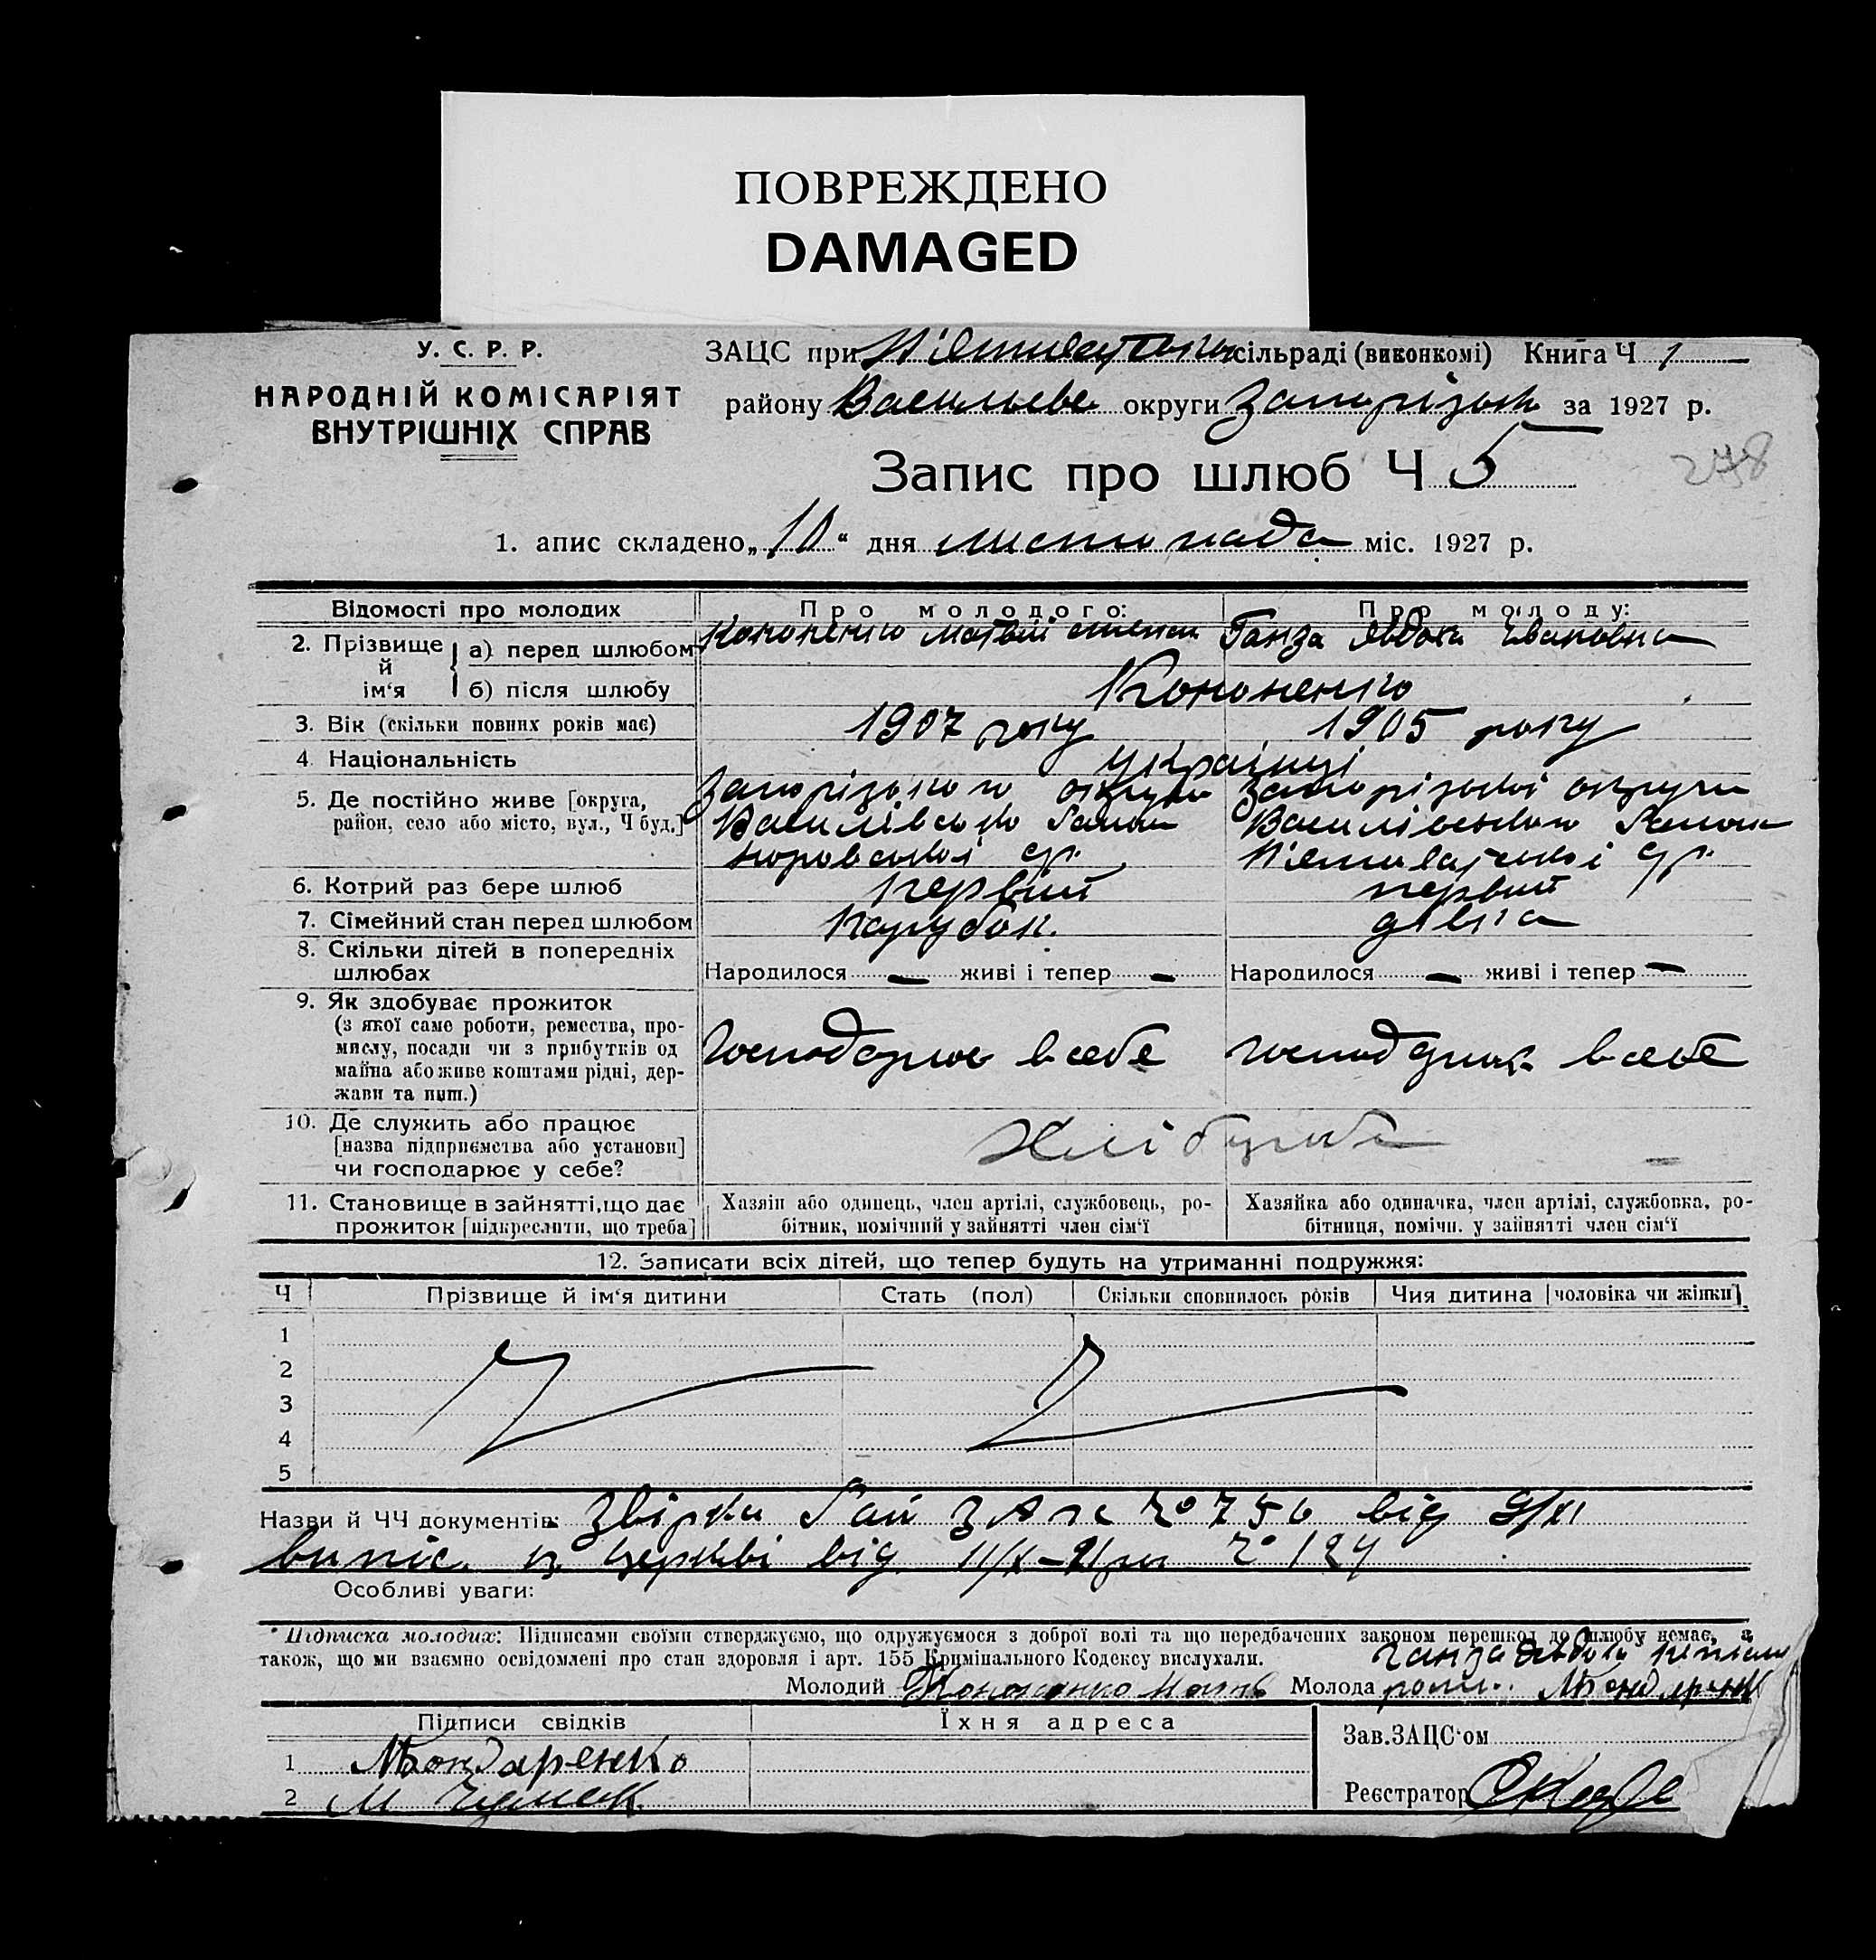 ПОВРЕЖДЕНО
DAMAGED
У. С. Р. Р.
НАРОДНІЙ КОМІСАРІЯТ
ВНУТРІШНІХ СПРАВ
ЗАЦС при сільраді (виконкомі) Книга Ч 1
району округи за 1927 р.
Запис про шлюб Ч 5
278
1. апис складено „10“ дня листопада міс. 1927 р.
Відомості про молодих
Про молодого:
Про молоду:
2. Прізвище й ім‘я
а) перед шлюбом
Кононенко Матвій
Ганза Явдоха Івановна
б) після шлюбу
Кононенко
3. Вік (скільки повних років має)
1907 року
1905 року
4. Національність
українці
5. Де постійно живе [округа,
район, село або місто, вул., Ч буд.]
округи
Запорізької округи
Василівського
Василівського
6. Котрий раз бере шлюб
первий
первий
7. Сімейний стан перед шлюбом
парубок.
дівка
8. Скільки дітей в попередніх
шлюбах
Народилося — живі і тепер —
Народилося — живі і тепер —
9. Як здобуває прожиток
(з якої саме роботи, ремества, про-
мислу, посади чи з прибутків од
майна або живе коштами рідні, дер-
жави та инш.)
в себе
в себе
10. Де служить або працює
[назва підприємства або установи]
чи господарює у себе?
11. Становище в зайнятті, що дає
прожиток [підкреслити, що треба]
Хазяїн або одинець, член артілі, службовець, ро-
бітник, помічний у зайнятті член сім‘ї
Хазяйка або одиначка, член артілі, службовка, ро-
бітниця, помічн. у зайнятті член сім‘ї
12. Записати всіх дітей, що тепер будуть на утриманні подружжя:
Ч
Прізвище й ім‘я дитини
Стать (пол)
Скільки сповнилось років
Чия дитина [чоловіка чи жінки]
1
2
3
4
5
Назви й ЧЧ документів: від 9/XI
церкві від
Особливі уваги:
* Підписка молодих: Підписами своїми стверджуємо, що одружуємося з доброї волі та що передбачених законом перешкод до шлюбу немає, а
також, що ми взаємно освідомлені про стан здоровля і арт. 155 Кримінального Кодексу вислухали.
Молодий Кононенко Матв
Молода
Підписи свідків
Їхня адреса
Зав. ЗАЦС‘ом
1 Бондаренко
2 М
Реєстратор